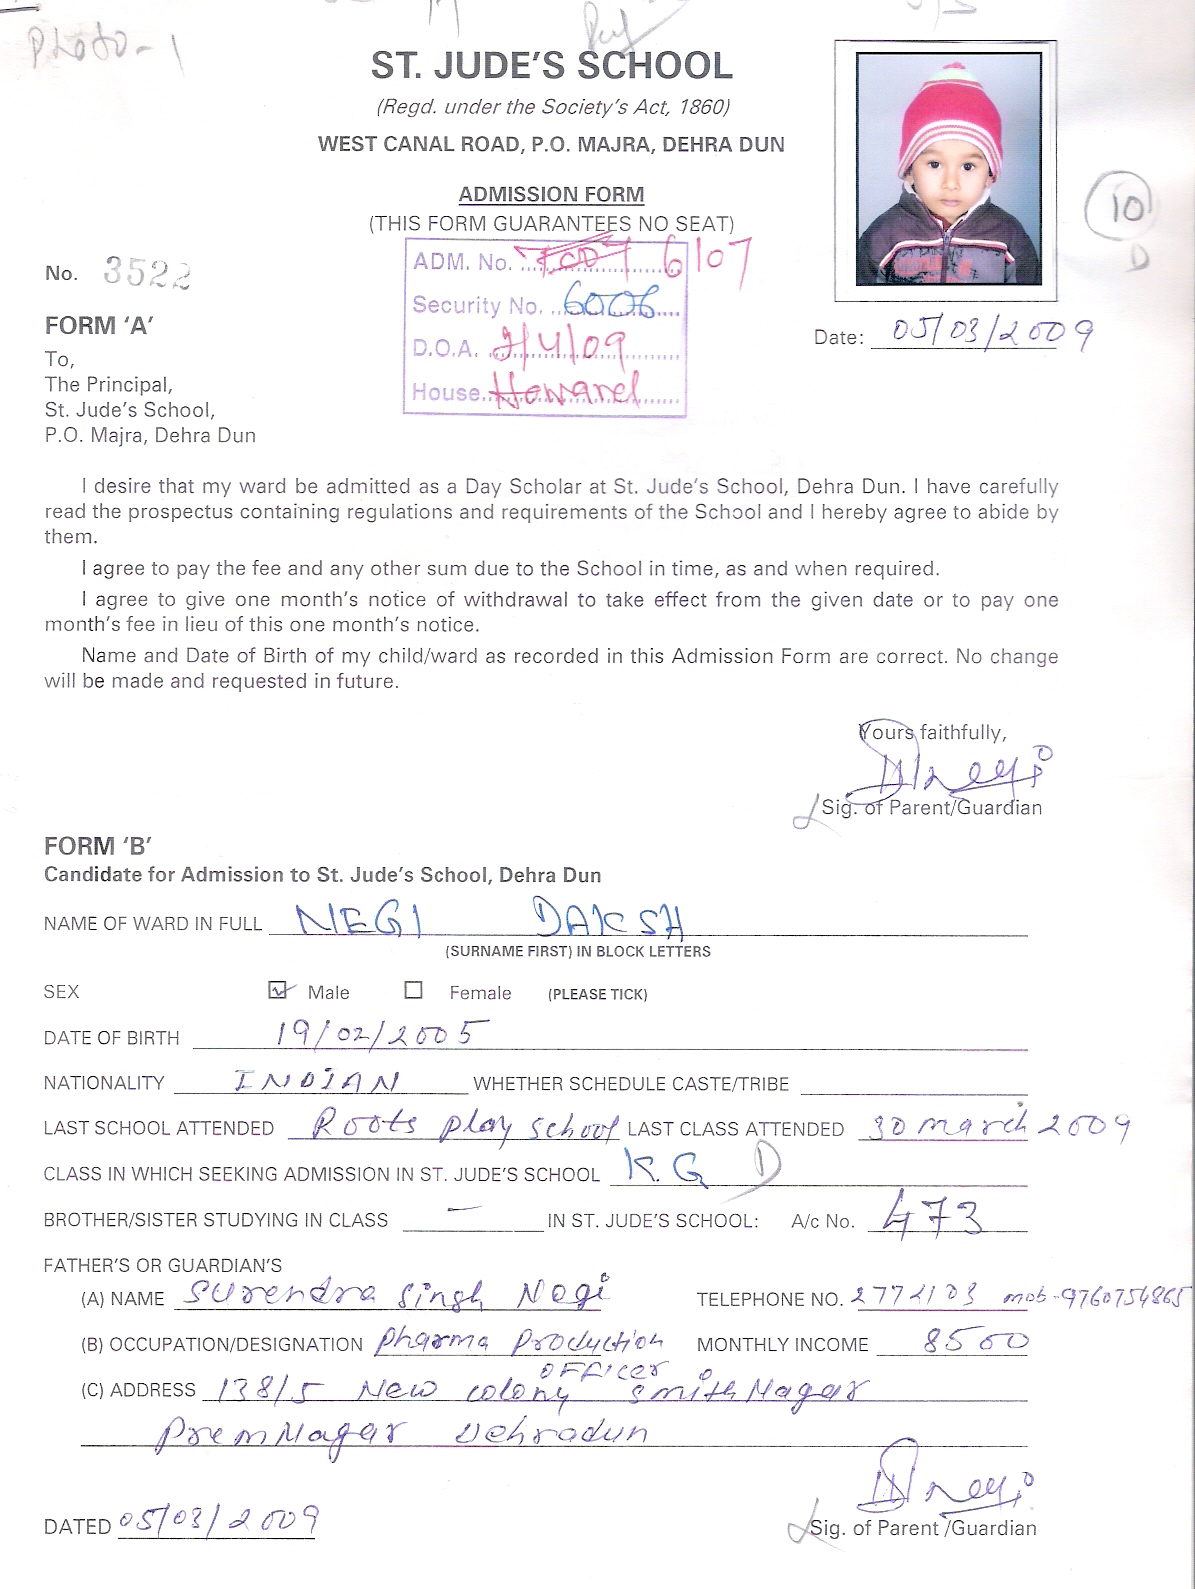 Photo-1
ST. JUDE'S SCHOOL
(Regd. under the Society's Act, 1860)
WEST CANAL ROAD, P.O. MAJRA, DEHRA DUN
ADMISSION FORM
(THIS FORM GUARANTEES NO SEAT)
10
D
No. 3522
ADM. No. 6107
Security No. 6006
D.O.A. 2/4/09
House Howard
FORM 'A'
Date: 05/03/2009
To,
The Principal,
St. Jude's School,
P.O. Majra, Dehra Dun
I desire that my ward be admitted as a Day Scholar at St. Jude's School, Dehra Dun. I have carefully
read the prospectus containing regulations and requirements of the School and I hereby agree to abide by
them.
I agree to pay the fee and any other sum due to the School in time, as and when required.
I agree to give one month's notice of withdrawal to take effect from the given date or to pay one
month's fee in lieu of this one month's notice.
Name and Date of Birth of my child/ward as recorded in this Admission Form are correct. No change
will be made and requested in future.
Yours faithfully,
Sig. of Parent/Guardian
FORM 'B'
Candidate for Admission to St. Jude's School, Dehra Dun
NAME OF WARD IN FULL NEGI DAKSH
(SURNAME FIRST) IN BLOCK LETTERS
SEX Male Female (PLEASE TICK)
DATE OF BIRTH 19/02/2005
NATIONALITY INDIAN WHETHER SCHEDULE CASTE/TRIBE
LAST SCHOOL ATTENDED Roots play school LAST CLASS ATTENDED 30 march 2009
CLASS IN WHICH SEEKING ADMISSION IN ST. JUDE'S SCHOOL K.G D
BROTHER/SISTER STUDYING IN CLASS — IN ST. JUDE'S SCHOOL: A/c No. 473
FATHER'S OR GUARDIAN'S
(A) NAME Surendra Singh Negi TELEPHONE NO. 2772103 mob-9760754865
(B) OCCUPATION/DESIGNATION Pharma Production MONTHLY INCOME 8500
officer
(C) ADDRESS 138/5 New colony SmithNagar
PremNagar Dehradun
DATED 05/03/2009
Sig. of Parent/Guardian